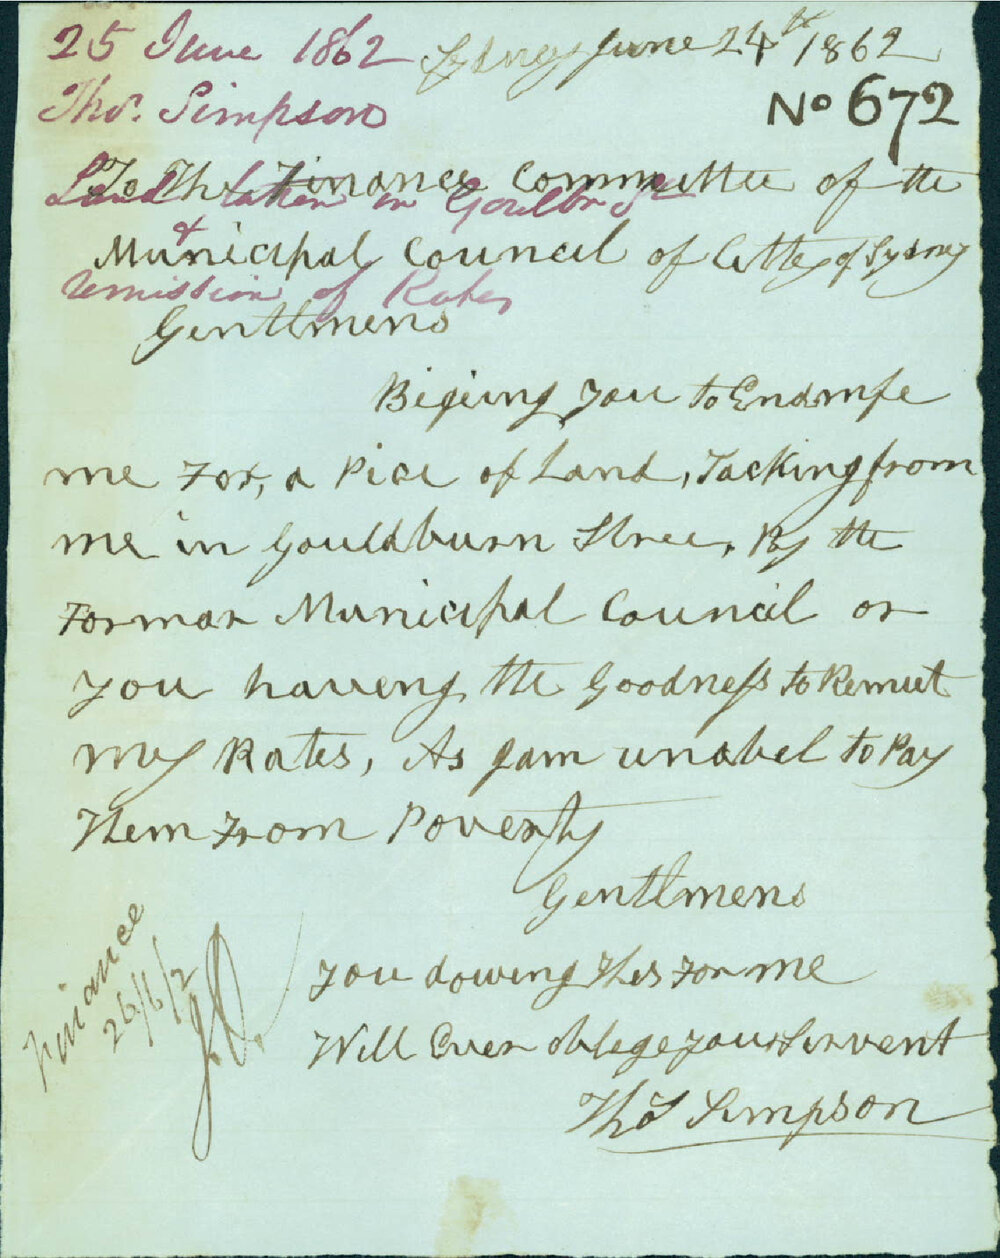 25 June 1862
Sydney June 24th 1862
Thos. Simpson
No 672
To The Finance Committee of the
Land taken in Goulbn St
&
Municipal Council of Citty of Sydney
remission of Rates
Gentlmens
Biging you to Endmfe
me For, a Pice of Land, Tacking from
me in Gouldburn Stree, By the
Formar Municipal Council or
you haveng the Goodness to Remeet
my Rates, As I am unabel to Pay
Them From Poverty
Gentlmens
you dowing This For me
Will Ever oblege your Servent
Thos Simpson
Finance
26/6/2